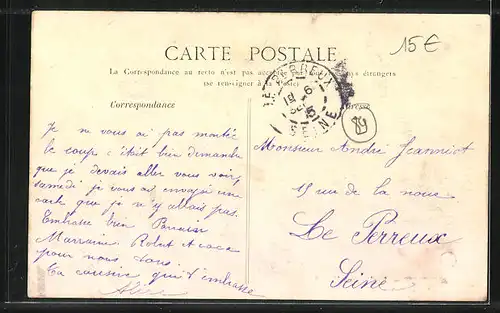 CARTE POSTALE
15€
La Correspondance au recto n'est pas pays étrangers
se renseigner à la Poste
LE PERREUX
SEINE
Correspondance
Adresse
Je ne vous ai pas monté
le coup c'était bien dimanche
que je devais aller vous voir
samedi je vous ai envoyé une
carte que je n'y allais pas.
Embrasse bien Parrain
Marraine Robert
pour nous tous.
Ta cousine qui t'embrasse
Monsieur André Jeanniot
15 rue de la noue
Le Perreux
Seine